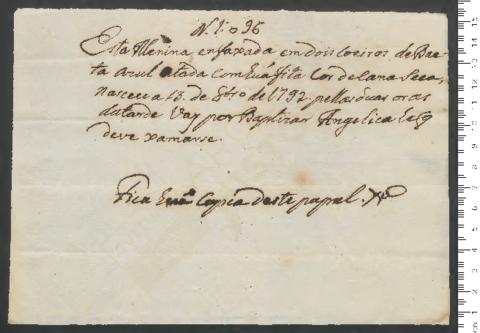 N. 1096
Esta Menina enfaxada em dois Coeiros de Bae
ta azul atada com huã fita Cor de lana seca,
nasceu a 13 de 8bro de 1792 pellas duas oras
da tarde Vay por Baptizar Angelica
deve xamarse.
Fica huã Copia deste papel.